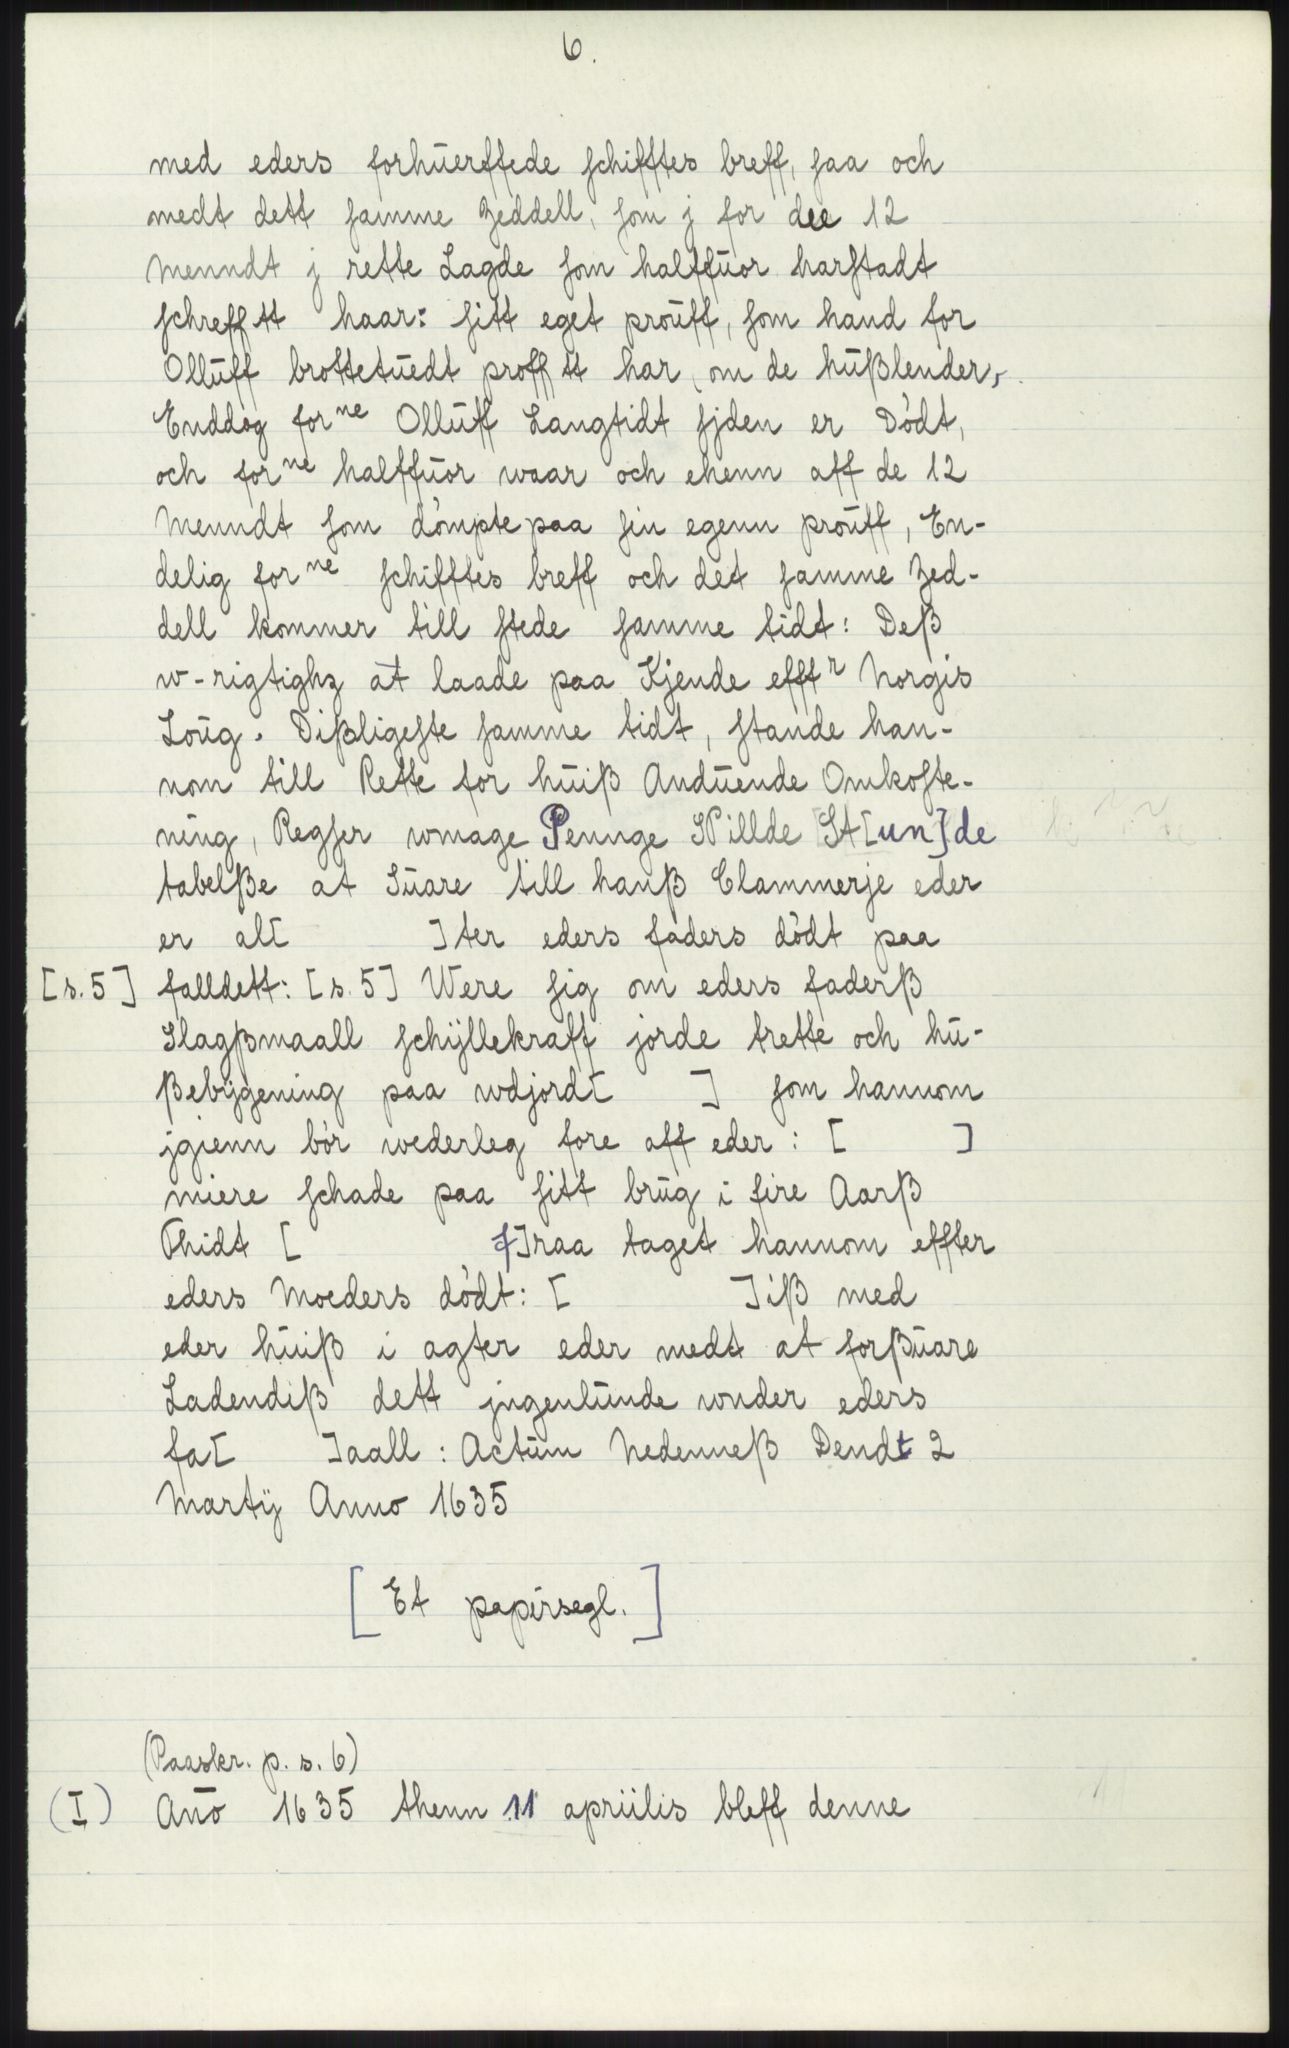 6.
med eders forhuerffede schifftes breff, saa och
medt dett samme Zeddell, som j for dee 12
Menndt j rette Lagde som halffuor harstadt
schrefftt haar: sitt eget prouff, som hand for
Olluff brottetuedt profftt har, om de hußlender,
Enddog forne Olluff Langtidt sjden er Dødt,
och forne halffuor waar och ehenn aff de 12
Menndt som dømpte paa sin egenn prouff, En-
delig forne schifftes breff och det samme Zed-
dell kommer till stede samme tidt: Deß
w-rigtighz at laade paa Kjende efftr Norgis
Loug. Dißligeste samme tidt, stande han-
nom till Rette for huiß Anduende Omkoste-
ning, Regser wmage Pennge Spillde St[un]de
tabelße at Suare till hanß Clammerje eder
er al[ ]ter eders faders dødt paa
[s.5] falldett: [s.5] Were sig om eders faderß
Slagßmaall schyllekraff jorde trette och hu-
ßebygening paa wdjord[ ] som hannom
jgienn bør wederleg fore aff eder: [ ]
miere schade paa sitt brug i fire Aarß
Thidt [ f]raa taget hannom effter
eders Moeders dødt: [ ]iß med
eder huiß i agter eder medt at forßuare
Ladendiß dett jngenlunde wnder eders
fa[ ]aall: Actum Nedenneß Dendt 2
Martij Anno 1635
[Et papirsegl.]
(Paaskr. p. s. 6)
(I) Ano 1635 thenn 11 apriilis bleff denne